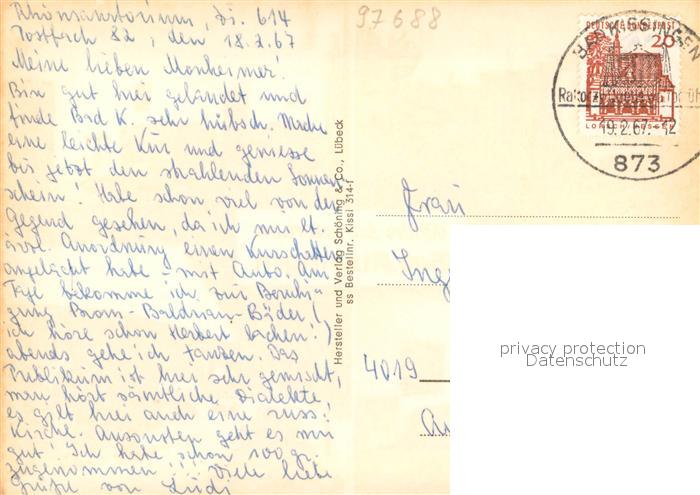 Rhönsanatorium, Zi. 614
Postfach 82, den 18.2.67
Meine lieben Monheimer!
Bin gut hier gelandet und
finde Bad K. sehr hübsch. Mache
eine leichte Kur und geniesse
bis jetzt den strahlenden Sonnen
schein! Habe schon viel von der
Gegend gesehen, da ich mir lt.
ärztl. Anordnung einen Kurschatten
angelacht habe - mit Auto. Am
Tage bekomme ich zur Beruhi-
gung Brom-Baldrian-Bäder (
ich höre schon Herbert lachen!)
abends gehe ich tanzen. Das
Publikum ist hier sehr gemischt,
man hört sämtliche Dialekte,
es gibt hier auch eine russ.
Kirche. Ansonsten geht es mir
gut! Ich habe schon 100 gr.
zugenommen!!! Viele liebe
Grüße von
Hersteller und Verlag Schöning & Co., Lübeck
ss Bestellnr. Kissi 314-f
97688
DEUTSCHE BUNDESPOST
20
LORSCH HESSEN
BAD KISSINGEN
19.2.67.-12
873
Frau
Ing
4019
privacy protection
Datenschutz